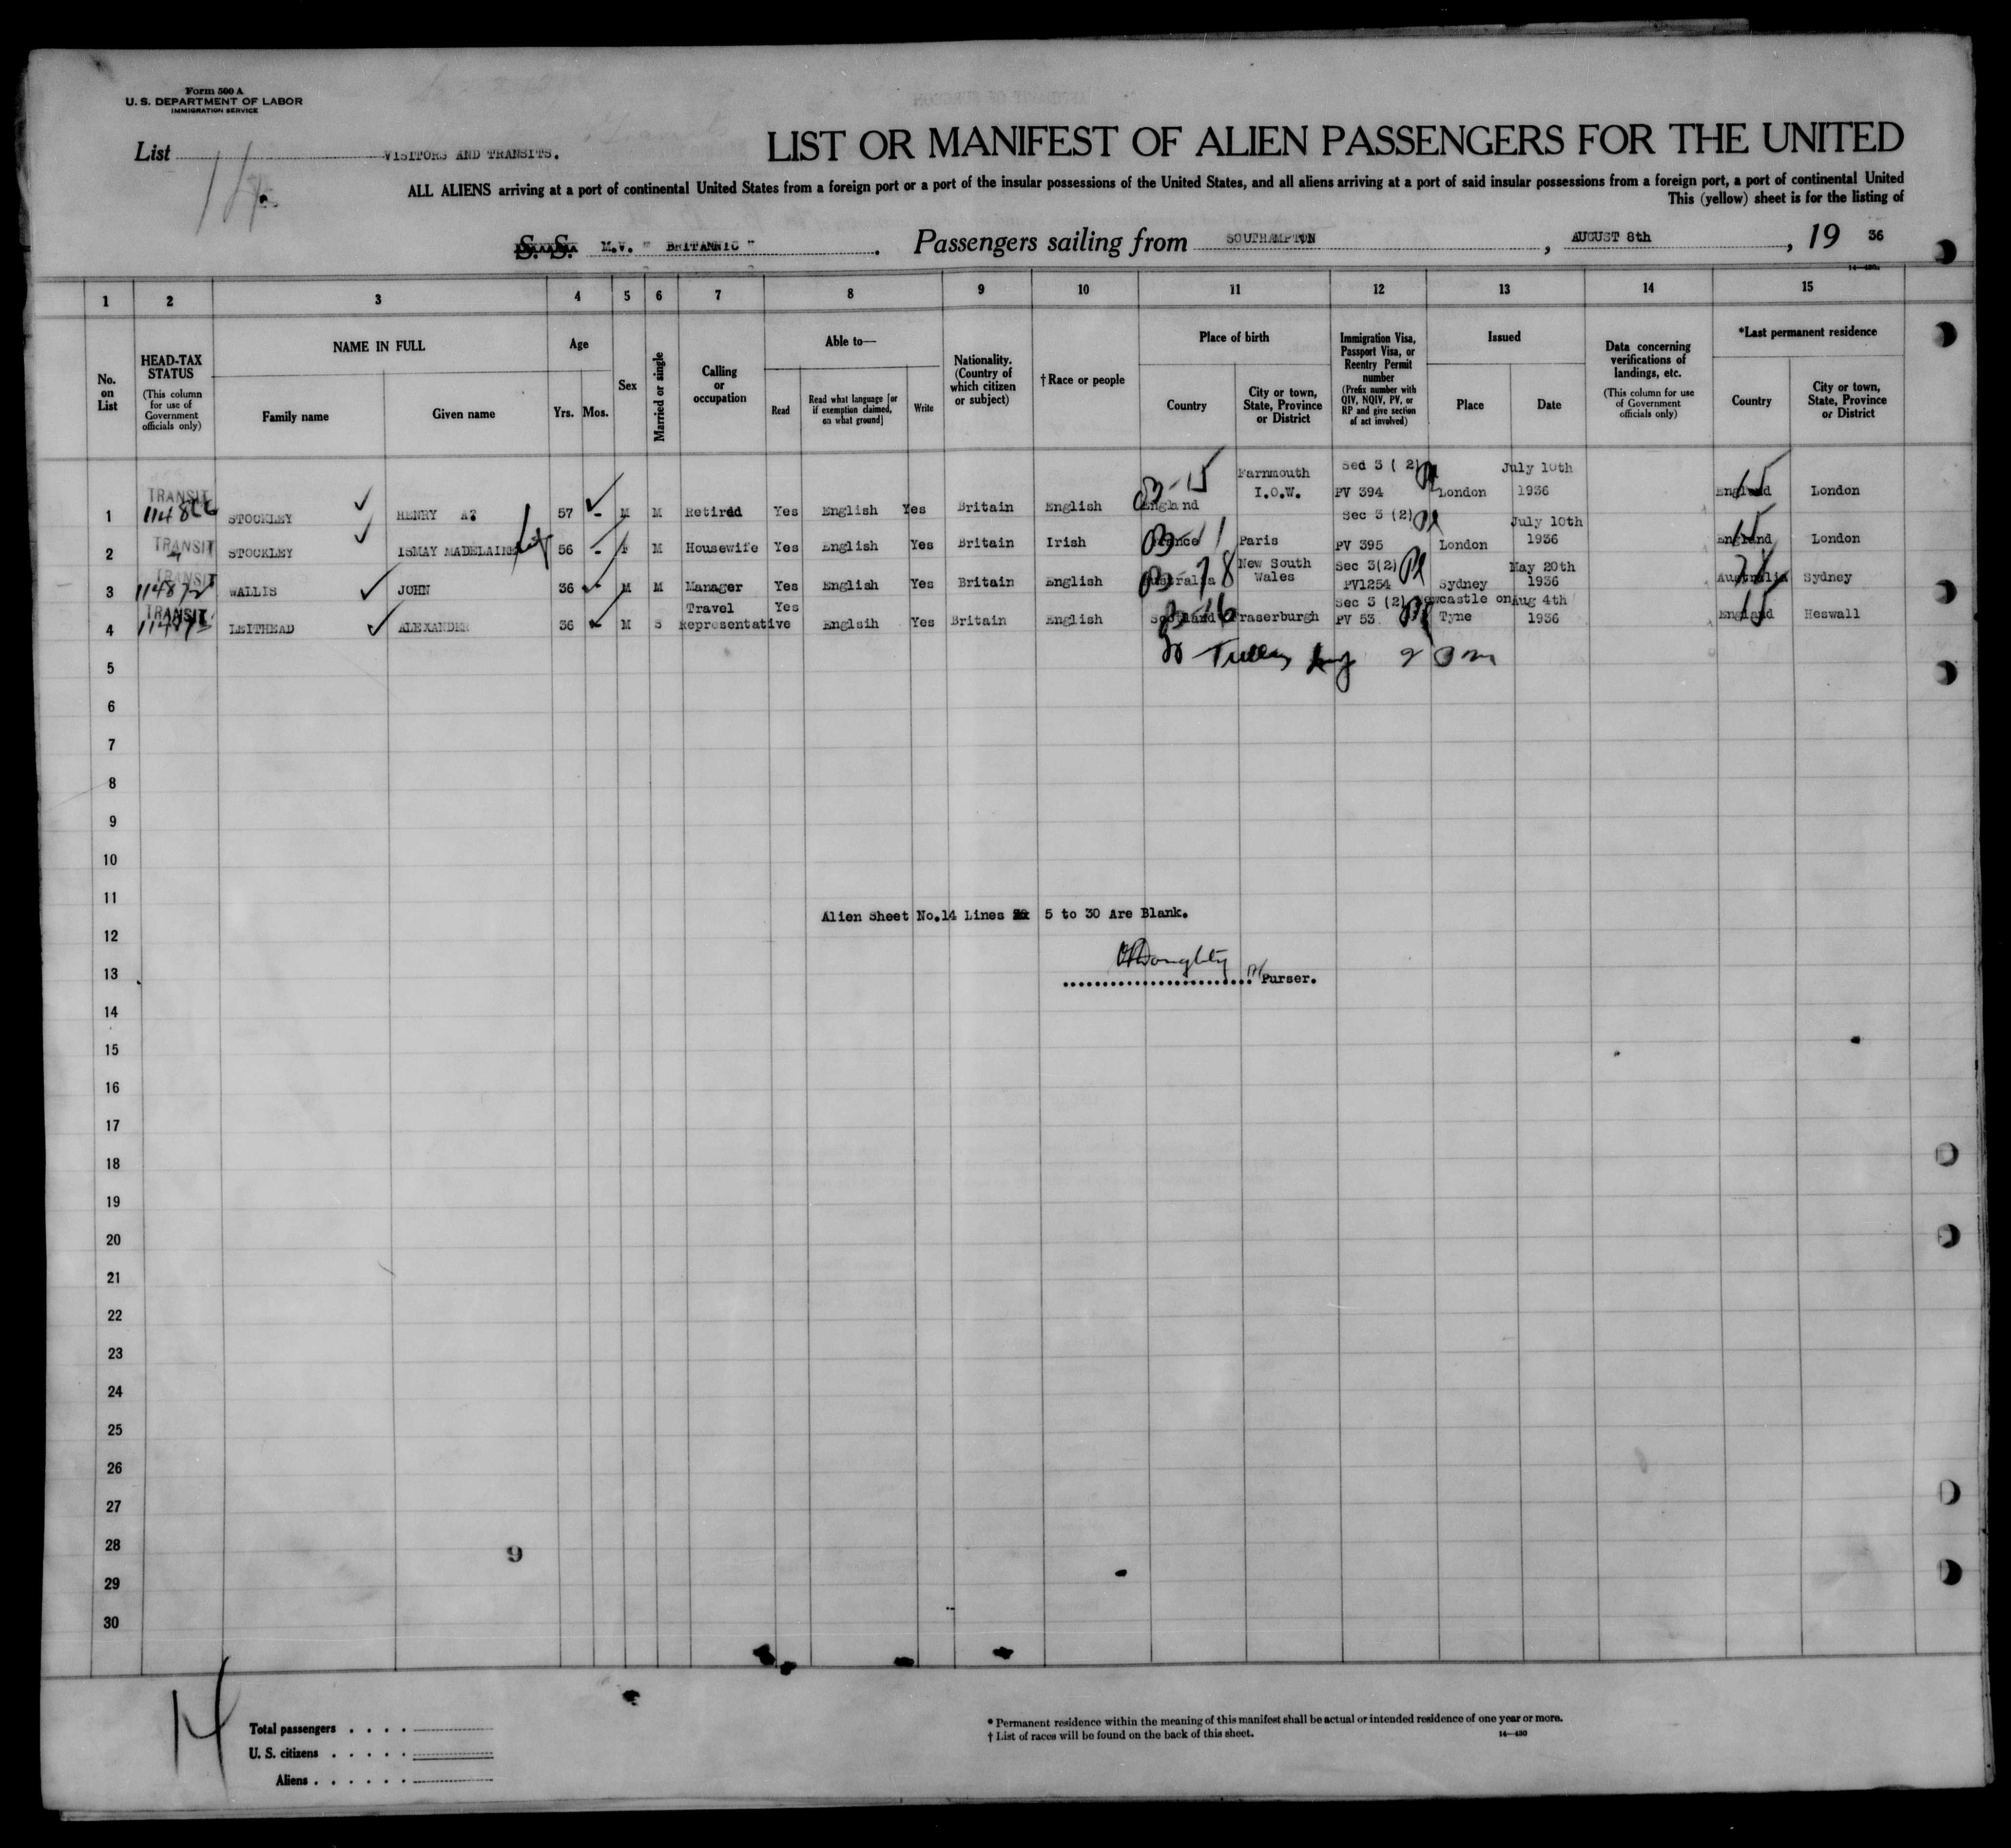 Form 500 A
U. S. DEPARTMENT OF LABOR
IMMIGRATION SERVICE
List 14 VISITORS AND TRANSITS.
LIST OR MANIFEST OF ALIEN PASSENGERS FOR THE UNITED
ALL ALIENS arriving at a port of continental United States from a foreign port or a port of the insular possessions of the United States, and all aliens arriving at a port of said insular possessions from a foreign port, a port of continental United
This (yellow) sheet is for the listing of
S. S. M.V. " BRITANNIC " . Passengers sailing from SOUTHAMPTON , AUGUST 8th , 19 36
1 2 3 4 5 6 7 8 9 10 11 12 13 14 15
No. on List
HEAD-TAX STATUS (This column for use of Government officials only)
NAME IN FULL
Family name Given name
Age
Yrs. Mos.
Sex
Married or single
Calling or occupation
Able to—
Read
Read what language [or if exemption claimed, on what ground]
Write
Nationality. (Country of which citizen or subject)
†Race or people
Place of birth
Country
City or town, State, Province or District
Immigration Visa, Passport Visa, or Reentry Permit number (Prefix number with QIV, NQIV, PV, or RP and give section of act involved)
Issued
Place Date
Data concerning verifications of landings, etc. (This column for use of Government officials only)
*Last permanent residence
Country
City or town, State, Province or District
1 TRANSIT STOCKLEY HENRY A? 57 - M M Retired Yes English Yes Britain English England Farnmouth I.O.W. Sed 3 ( 2) PV 394 London July 10th 1936 England London
2 TRANSIT STOCKLEY ISMAY MADELAINE 56 - F M Housewife Yes English Yes Britain Irish France Paris Sec 3 (2) PV 395 London July 10th 1936 England London
3 TRANSIT WALLIS JOHN 36 - M M Manager Yes English Yes Britain English Australia New South Wales Sec 3(2) PV1254 Sydney May 20th 1936 Australia Sydney
4 TRANSIT LEITHEAD ALEXANDER 36 M S Travel Representative Yes Englsih Yes Britain English Scotland Fraserburgh Sec 3 (2) PV 53 Newcastle on Tyne Aug 4th 1936 England Heswall
5
6
7
8
9
10
11
Alien Sheet No.14 Lines 5 to 30 Are Blank.
12
13
Purser.
14
15
16
17
18
19
20
21
22
23
24
25
26
27
28
9
29
30
14
Total passengers . . . .
U. S. citizens . . . . .
Aliens . . . . . .
* Permanent residence within the meaning of this manifest shall be actual or intended residence of one year or more.
† List of races will be found on the back of this sheet.
14—430